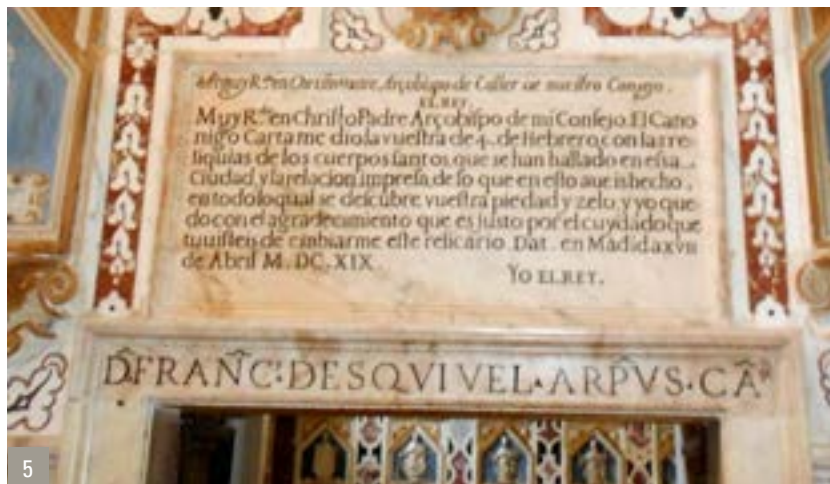 Al muy R.do en Christo Padre, Arçobispo de Caller de nuestro Consejo.
EL REY.
Muy R.do en Christo Padre Arçobispo de mi Consejo. El Cano
nigo Cartame dio la vuestra de 4. de Hebrero, con las re
liquias de los cuerpos santos, que se han hallado en essa
Ciudad, y la relacion impressa, de lo que en esto aueis hecho,
en todo lo qual se descubre vuestra piedad y zelo, y yo que
do con el agradecimiento que es justo por el cuydado que
tuuisteis de embiarme este relicario. Dat. en Madrid a xvii
de Abril M. DC. XIX.
YO EL REY.
D. FRANC: DESQVIVEL. ARPVS. CA
5